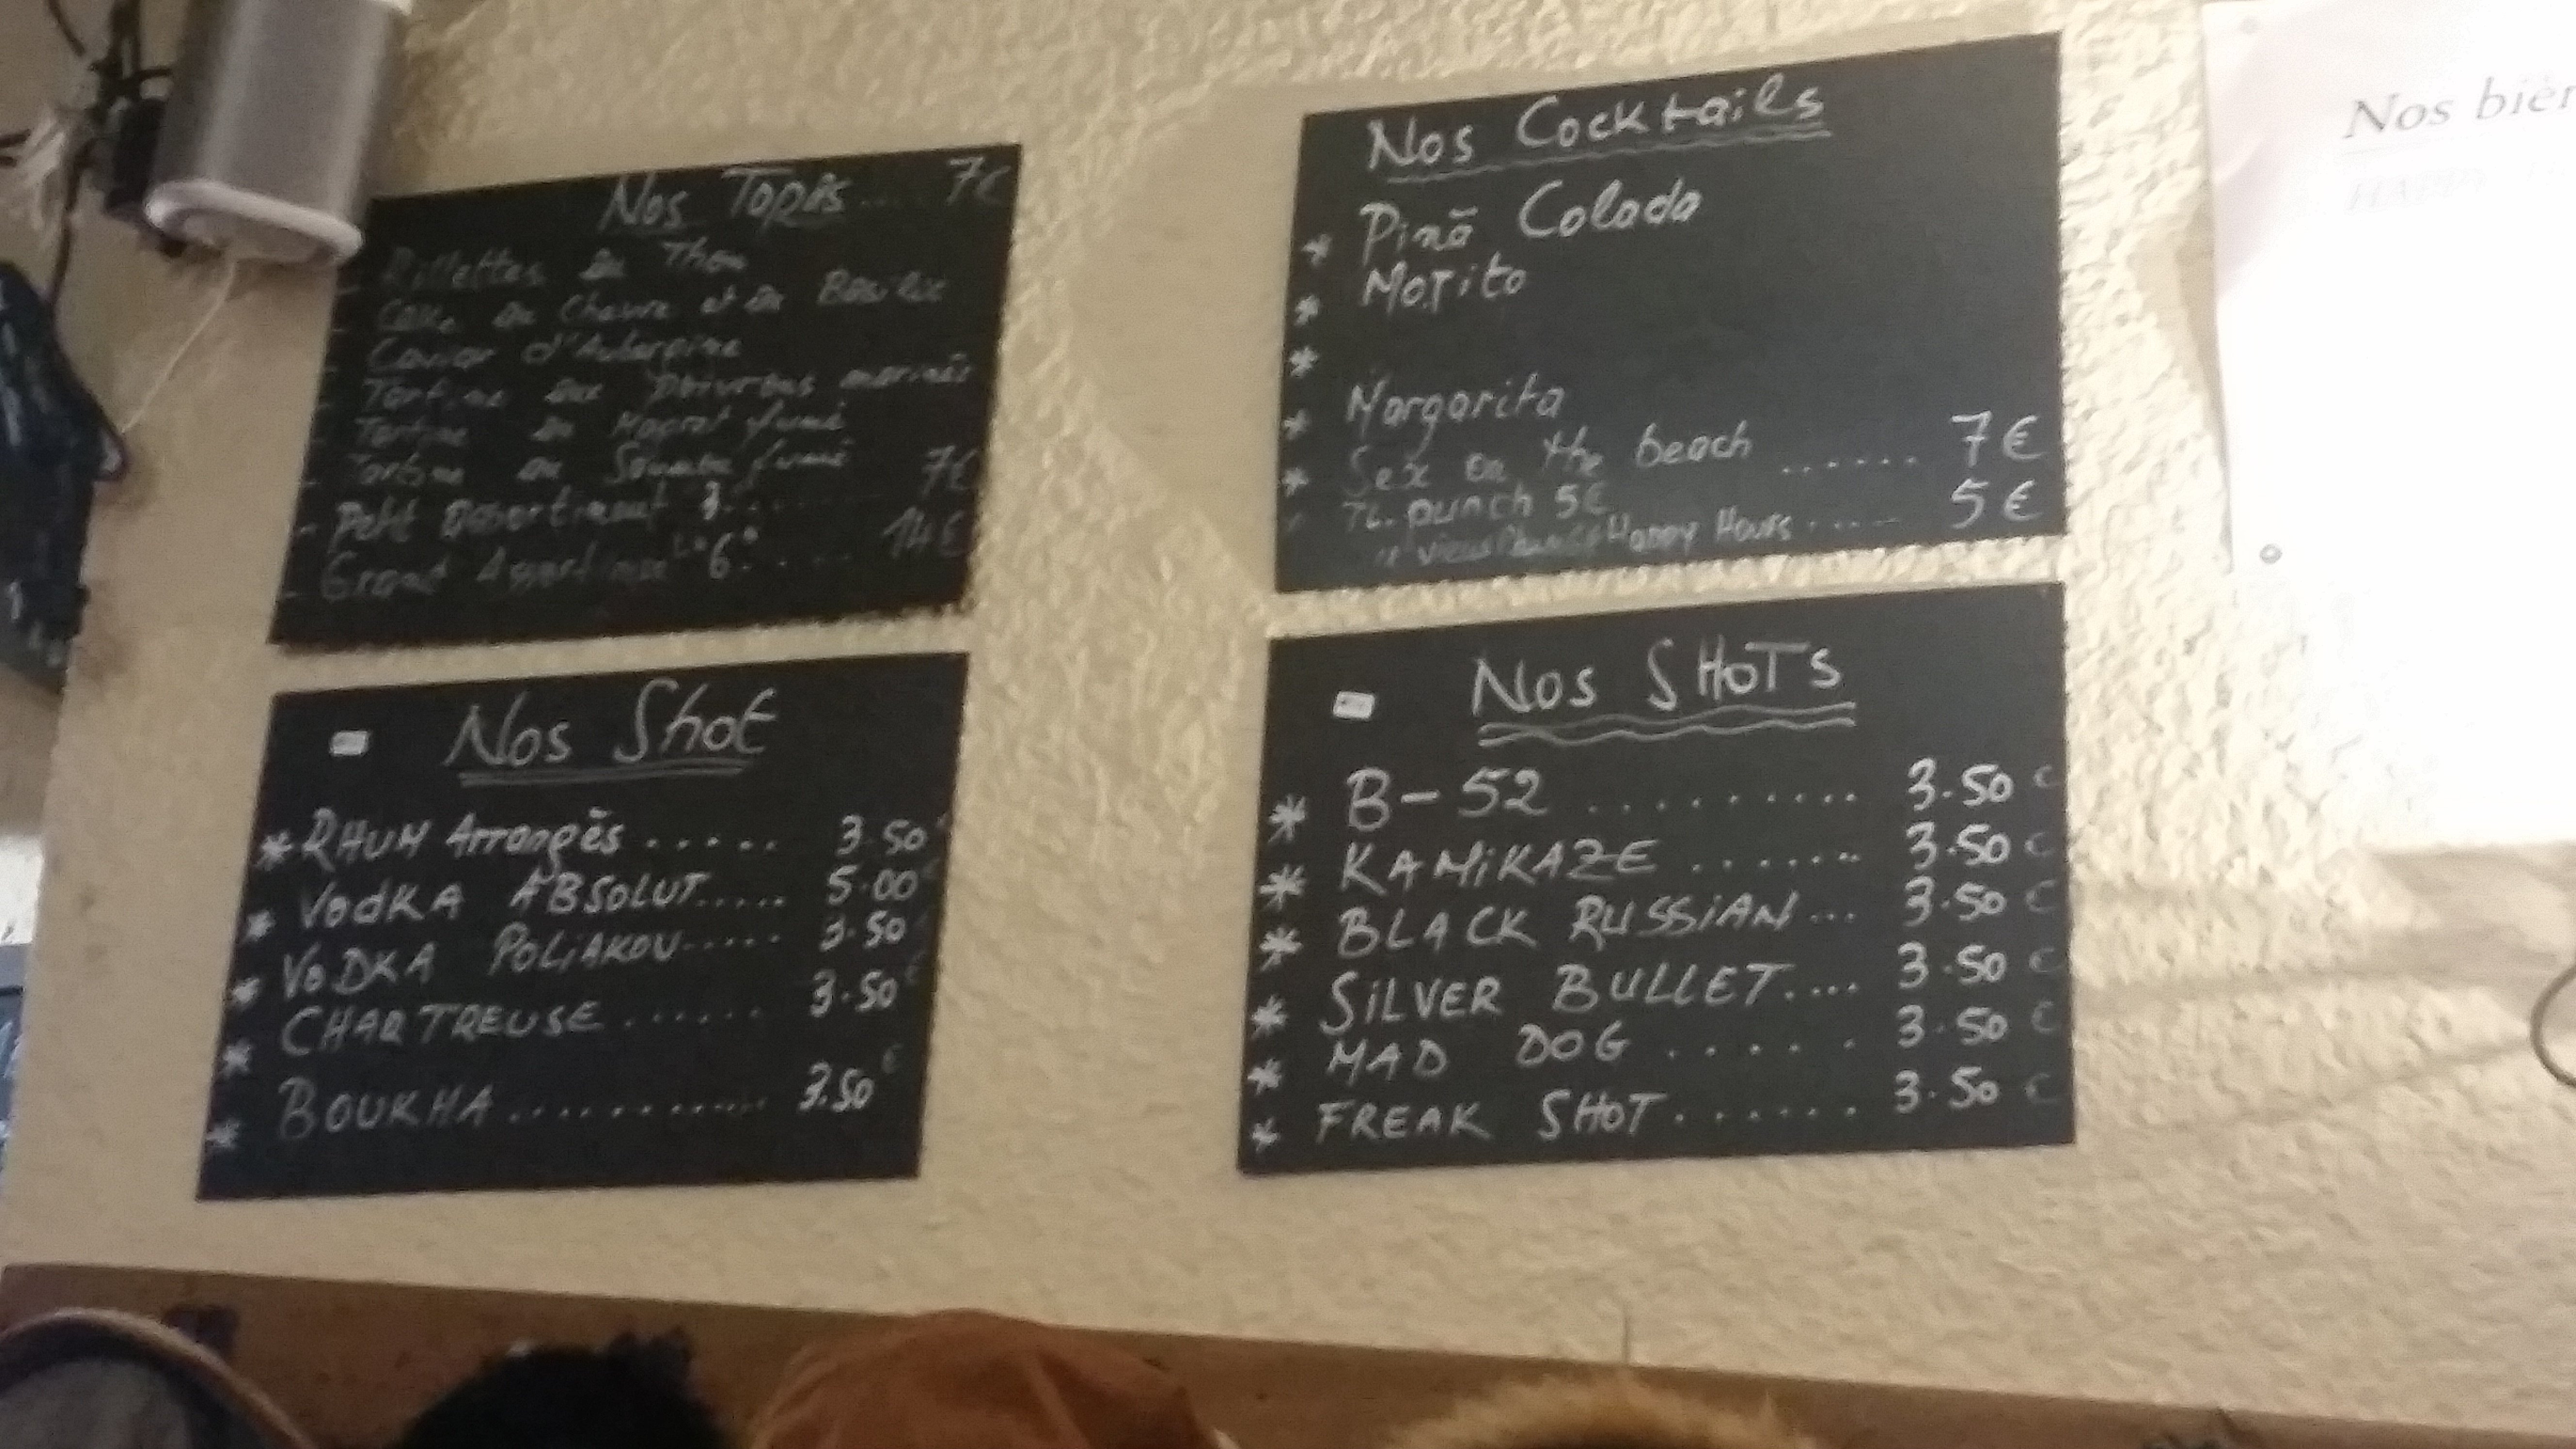 Nos Tapas.... 7€
- Rillettes de Thon
- Cake de Chèvre et de Basilic
- Caviar d'Aubergine
- Tartine aux Poivrons marinés
- Tartine de fumé
- Tartine de fumé
- Petit Assortiment 3....... 7€
- Grand Assortiment "6"..... 14€
Nos Cocktails
* Pinã Colada
* MoJito
*
* Margarita
* Sex on the beach ....... 7€
Ti. punch 5€
Happy Hours ...... 5€
Nos Shot
* RHUM Arrangés ...... 3.50
* VodKA ABSOLUT..... 5.00€
* VoDKA POLiAKOV..... 3.50
* CHARTREUSE ...... 3.50€
* BOUKHA............ 3.50€
Nos SHoTs
* B-52 .......... 3.50€
* KAMiKAZE ....... 3.50€
* BLACK RUSSiAN... 3.50€
* SiLVER BULLET.... 3.50€
* MAD DOG ..... 3.50€
* FREAK SHoT....... 3.50€
Nos
HAPPY